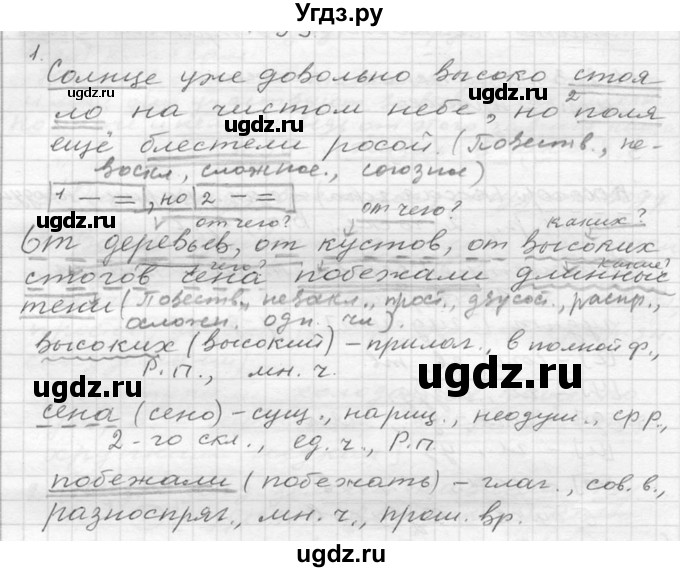 Угдз.ру
1.
Солнце уже довольно высоко стоя
ло на чистом небе, но 2 поля
ещё блестели росой. (Повеств., не-
воскл., сложное., союзное)
1 — =, но 2 — =
от чего? от чего? каких?
От деревьев, от кустов, от высоких
чего? какие?
стогов сена побежали длинные
тени (Повеств., невоскл., прост., двусост., распр.,
осложн. одн. чл).
высоких (высокий) – прилаг., в полной ф.,
Р.П., мн. ч.
сена (сено) – сущ., нариц., неодуш., ср р.,
2-го скл., ед. ч., Р.П.
побежали (побежать) – глаг., сов. в.,
разноспряг., мн. ч., прош. вр.
ugdz.ru
ugdz.ru
ugdz.ru
ugdz.ru
ugdz.ru
ugdz.ru
ugdz.ru
ugdz.ru